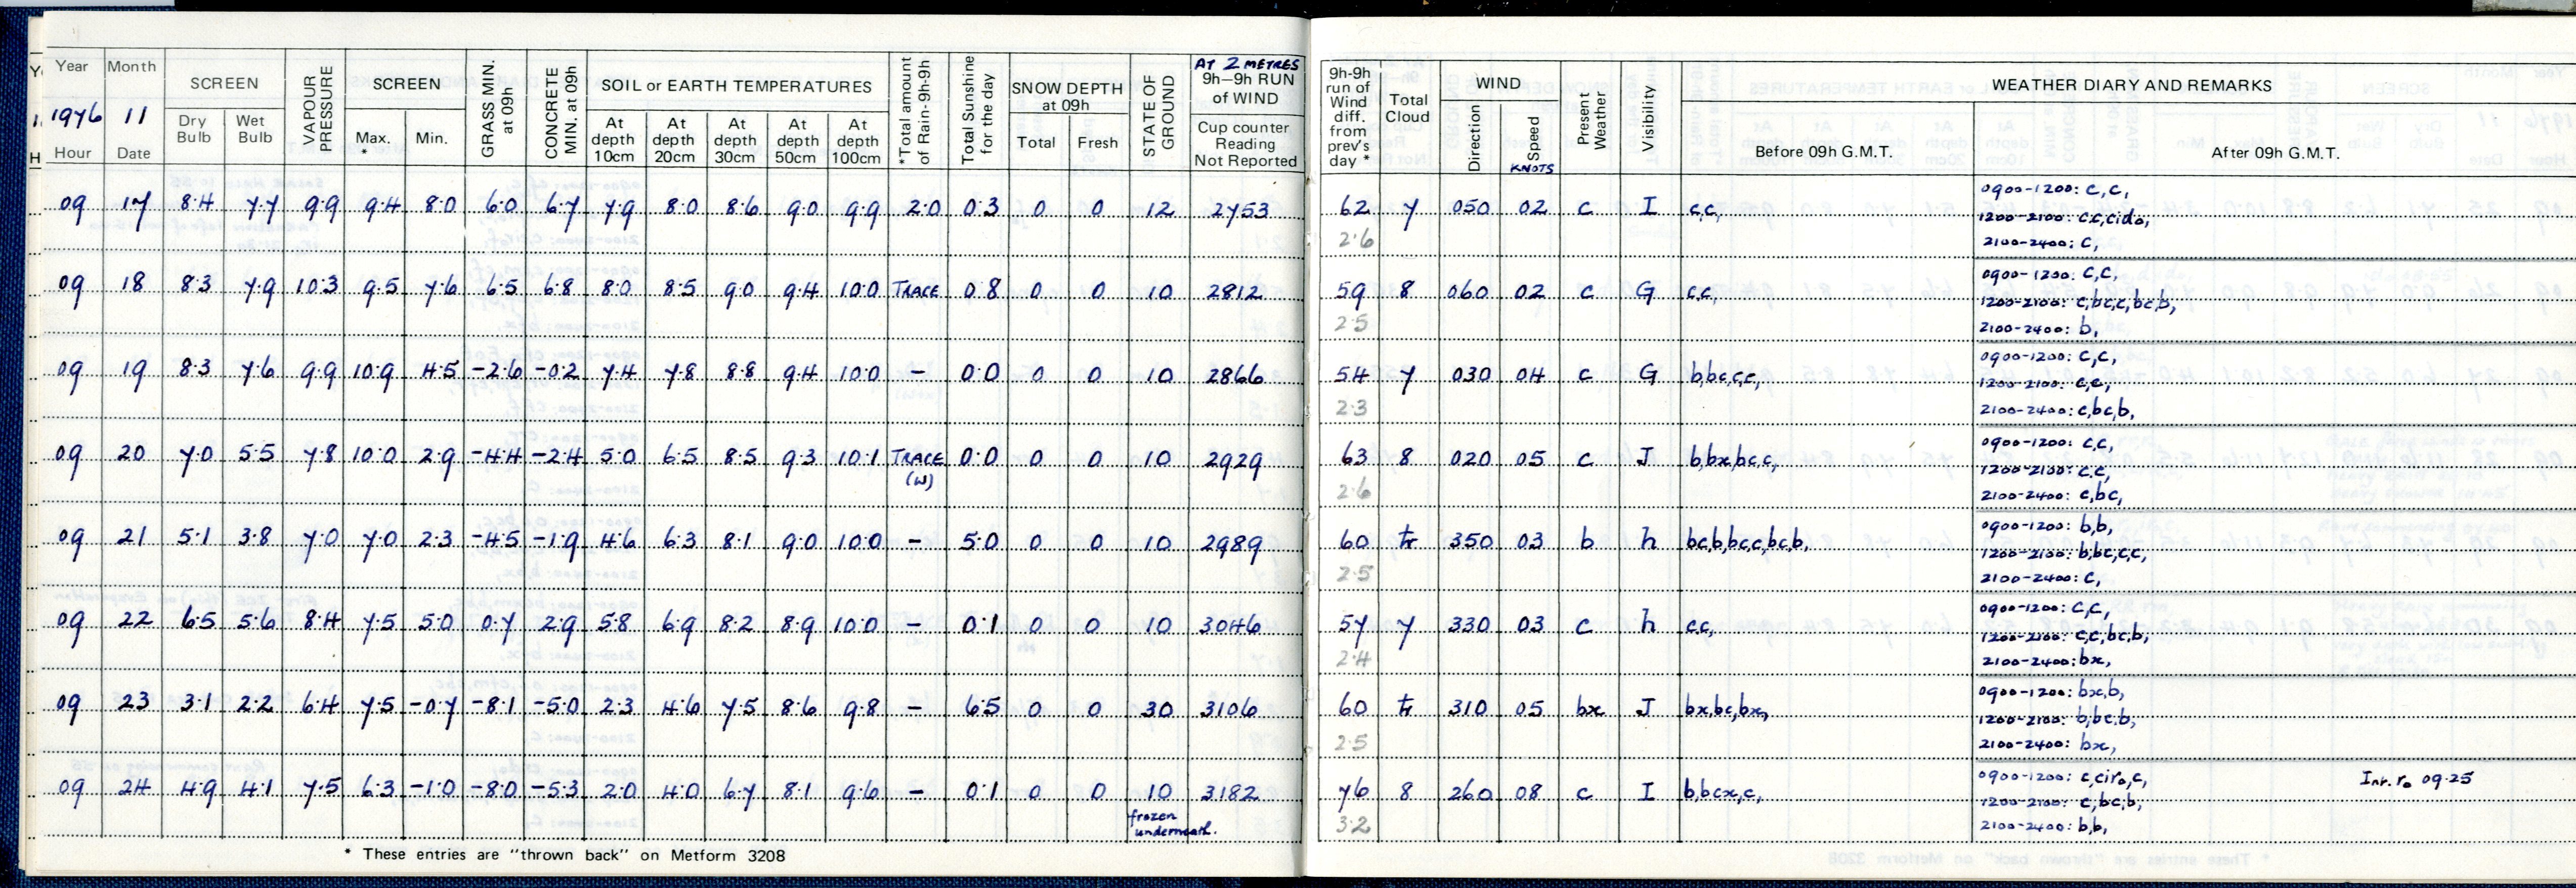 Year Month SCREEN VAPOUR PRESSURE SCREEN GRASS MIN. at 09h CONCRETE MIN. at 09h SOIL or EARTH TEMPERATURES *Total amount of Rain-9h-9h Total Sunshine for the day SNOW DEPTH at 09h STATE OF GROUND AT 2 METRES 9h—9h RUN of WIND
1976 11 Dry Bulb Wet Bulb Max. * Min. At depth 10cm At depth 20cm At depth 30cm At depth 50cm At depth 100cm Total Fresh Cup counter Reading Not Reported
Hour Date
09 17 8.4 7.7 9.9 9.4 8.0 6.0 6.7 7.9 8.0 8.6 9.0 9.9 2.0 0.3 0 0 12 2753
09 18 8.3 7.9 10.3 9.5 7.6 6.5 6.8 8.0 8.5 9.0 9.4 10.0 TRACE 0.8 0 0 10 2812
09 19 8.3 7.6 9.9 10.9 4.5 -2.6 -0.2 7.4 7.8 8.8 9.4 10.0 - 0.0 0 0 10 2866
09 20 7.0 5.5 7.8 10.0 2.9 -4.4 -2.4 5.0 6.5 8.5 9.3 10.1 TRACE (W) 0.0 0 0 10 2929
09 21 5.1 3.8 7.0 7.0 2.3 -4.5 -1.9 4.6 6.3 8.1 9.0 10.0 - 5.0 0 0 10 2989
09 22 6.5 5.6 8.4 7.5 5.0 0.7 2.9 5.8 6.9 8.2 8.9 10.0 - 0.1 0 0 10 3046
09 23 3.1 2.2 6.4 7.5 -0.7 -8.1 -5.0 2.3 4.6 7.5 8.6 9.8 - 6.5 0 0 30 3106
09 24 4.9 4.1 7.5 6.3 -1.0 -8.0 -5.3 2.0 4.0 6.7 8.1 9.6 - 0.1 0 0 10 3182
frozen underneath.
* These entries are "thrown back" on Metform 3208
9h-9h run of Wind diff. from prev's day * Total Cloud WIND Present Weather Visibility WEATHER DIARY AND REMARKS
Direction Speed KNOTS Before 09h G.M.T. After 09h G.M.T.
0900-1200: c,c,
62 7 050 02 c I c,c, 1200-2100: c,c,cid₀,
2.6 2100-2400: c,
0900-1200: c,c,
59 8 060 02 c G c,c, 1200-2100: c,bc,c,bc,b,
2.5 2100-2400: b,
0900-1200: c,c,
54 7 030 04 c G b,bc,c,c, 1200-2100: c,c,
2.3 2100-2400: c,bc,b,
0900-1200: c,c,
63 8 020 05 c J b,bx,bc,c, 1200-2100: c,c,
2.6 2100-2400: c,bc,
0900-1200: b,b,
60 tr 350 03 b h bc,b,bc,c,bc,b, 1200-2100: b,bc,c,c,
2.5 2100-2400: c,
0900-1200: c,c,
57 7 330 03 c h c,c, 1200-2100: c,c,bc,b,
2.4 2100-2400: bx,
0900-1200: bx,b,
60 tr 310 05 bx J bx,bc,bx, 1200-2100: b,bc,b,
2.5 2100-2400: bx,
0900-1200: c,cir₀,c, Int. r₀ 09.25
76 8 260 08 c I b,bcx,c, 1200-2100: c,bc,b,
3.2 2100-2400: b,b,